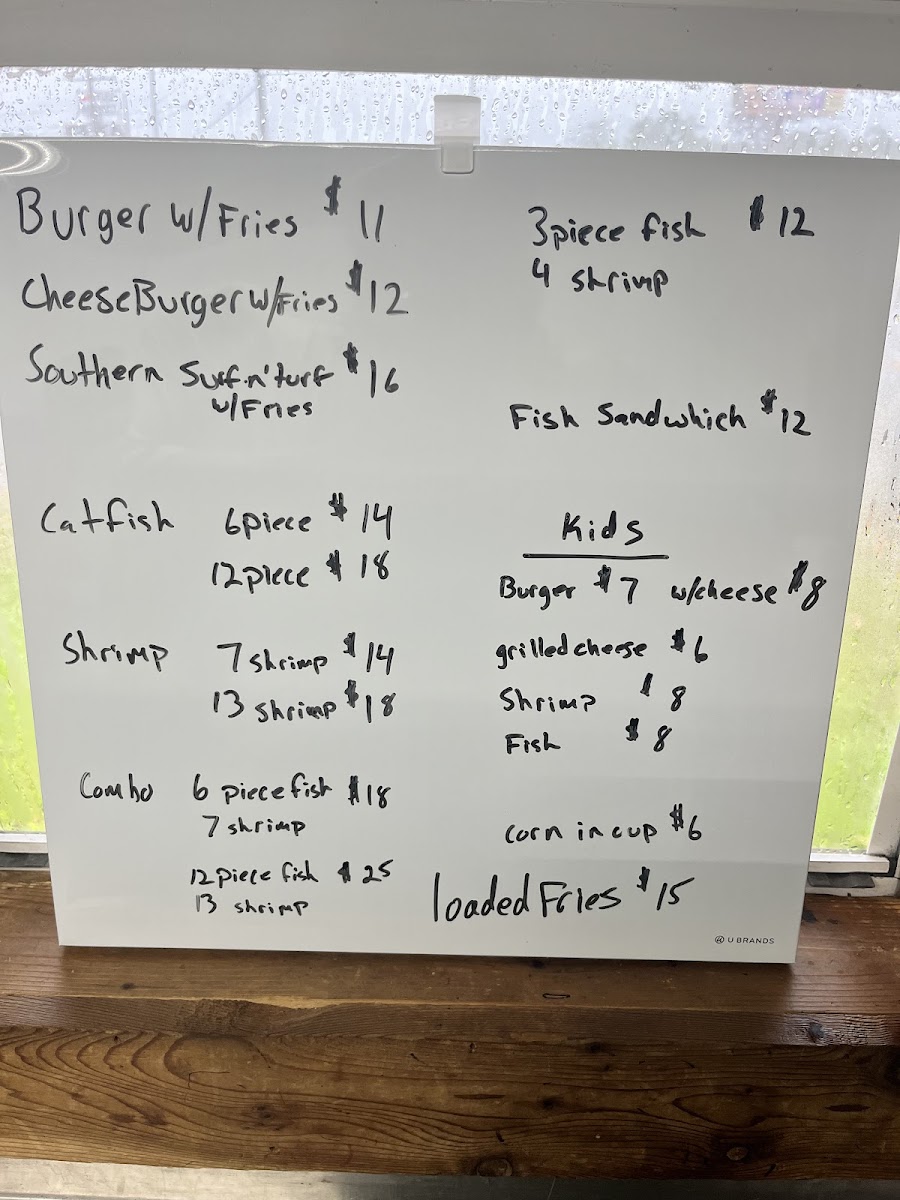 Burger w/Fries $11
CheeseBurger w/Fries $12
Southern Surf n' turf $16
w/Fries
Catfish 6piece $14
12piece $18
Shrimp 7 shrimp $14
13 shrimp $18
Combo 6 piece fish $18
7 shrimp
12piece fish $25
13 shrimp
3piece fish $12
4 shrimp
Fish Sandwhich $12
Kids
Burger $7 w/cheese $8
grilled cheese $6
Shrimp $8
Fish $8
corn in cup $6
loaded Fries $15
U BRANDS